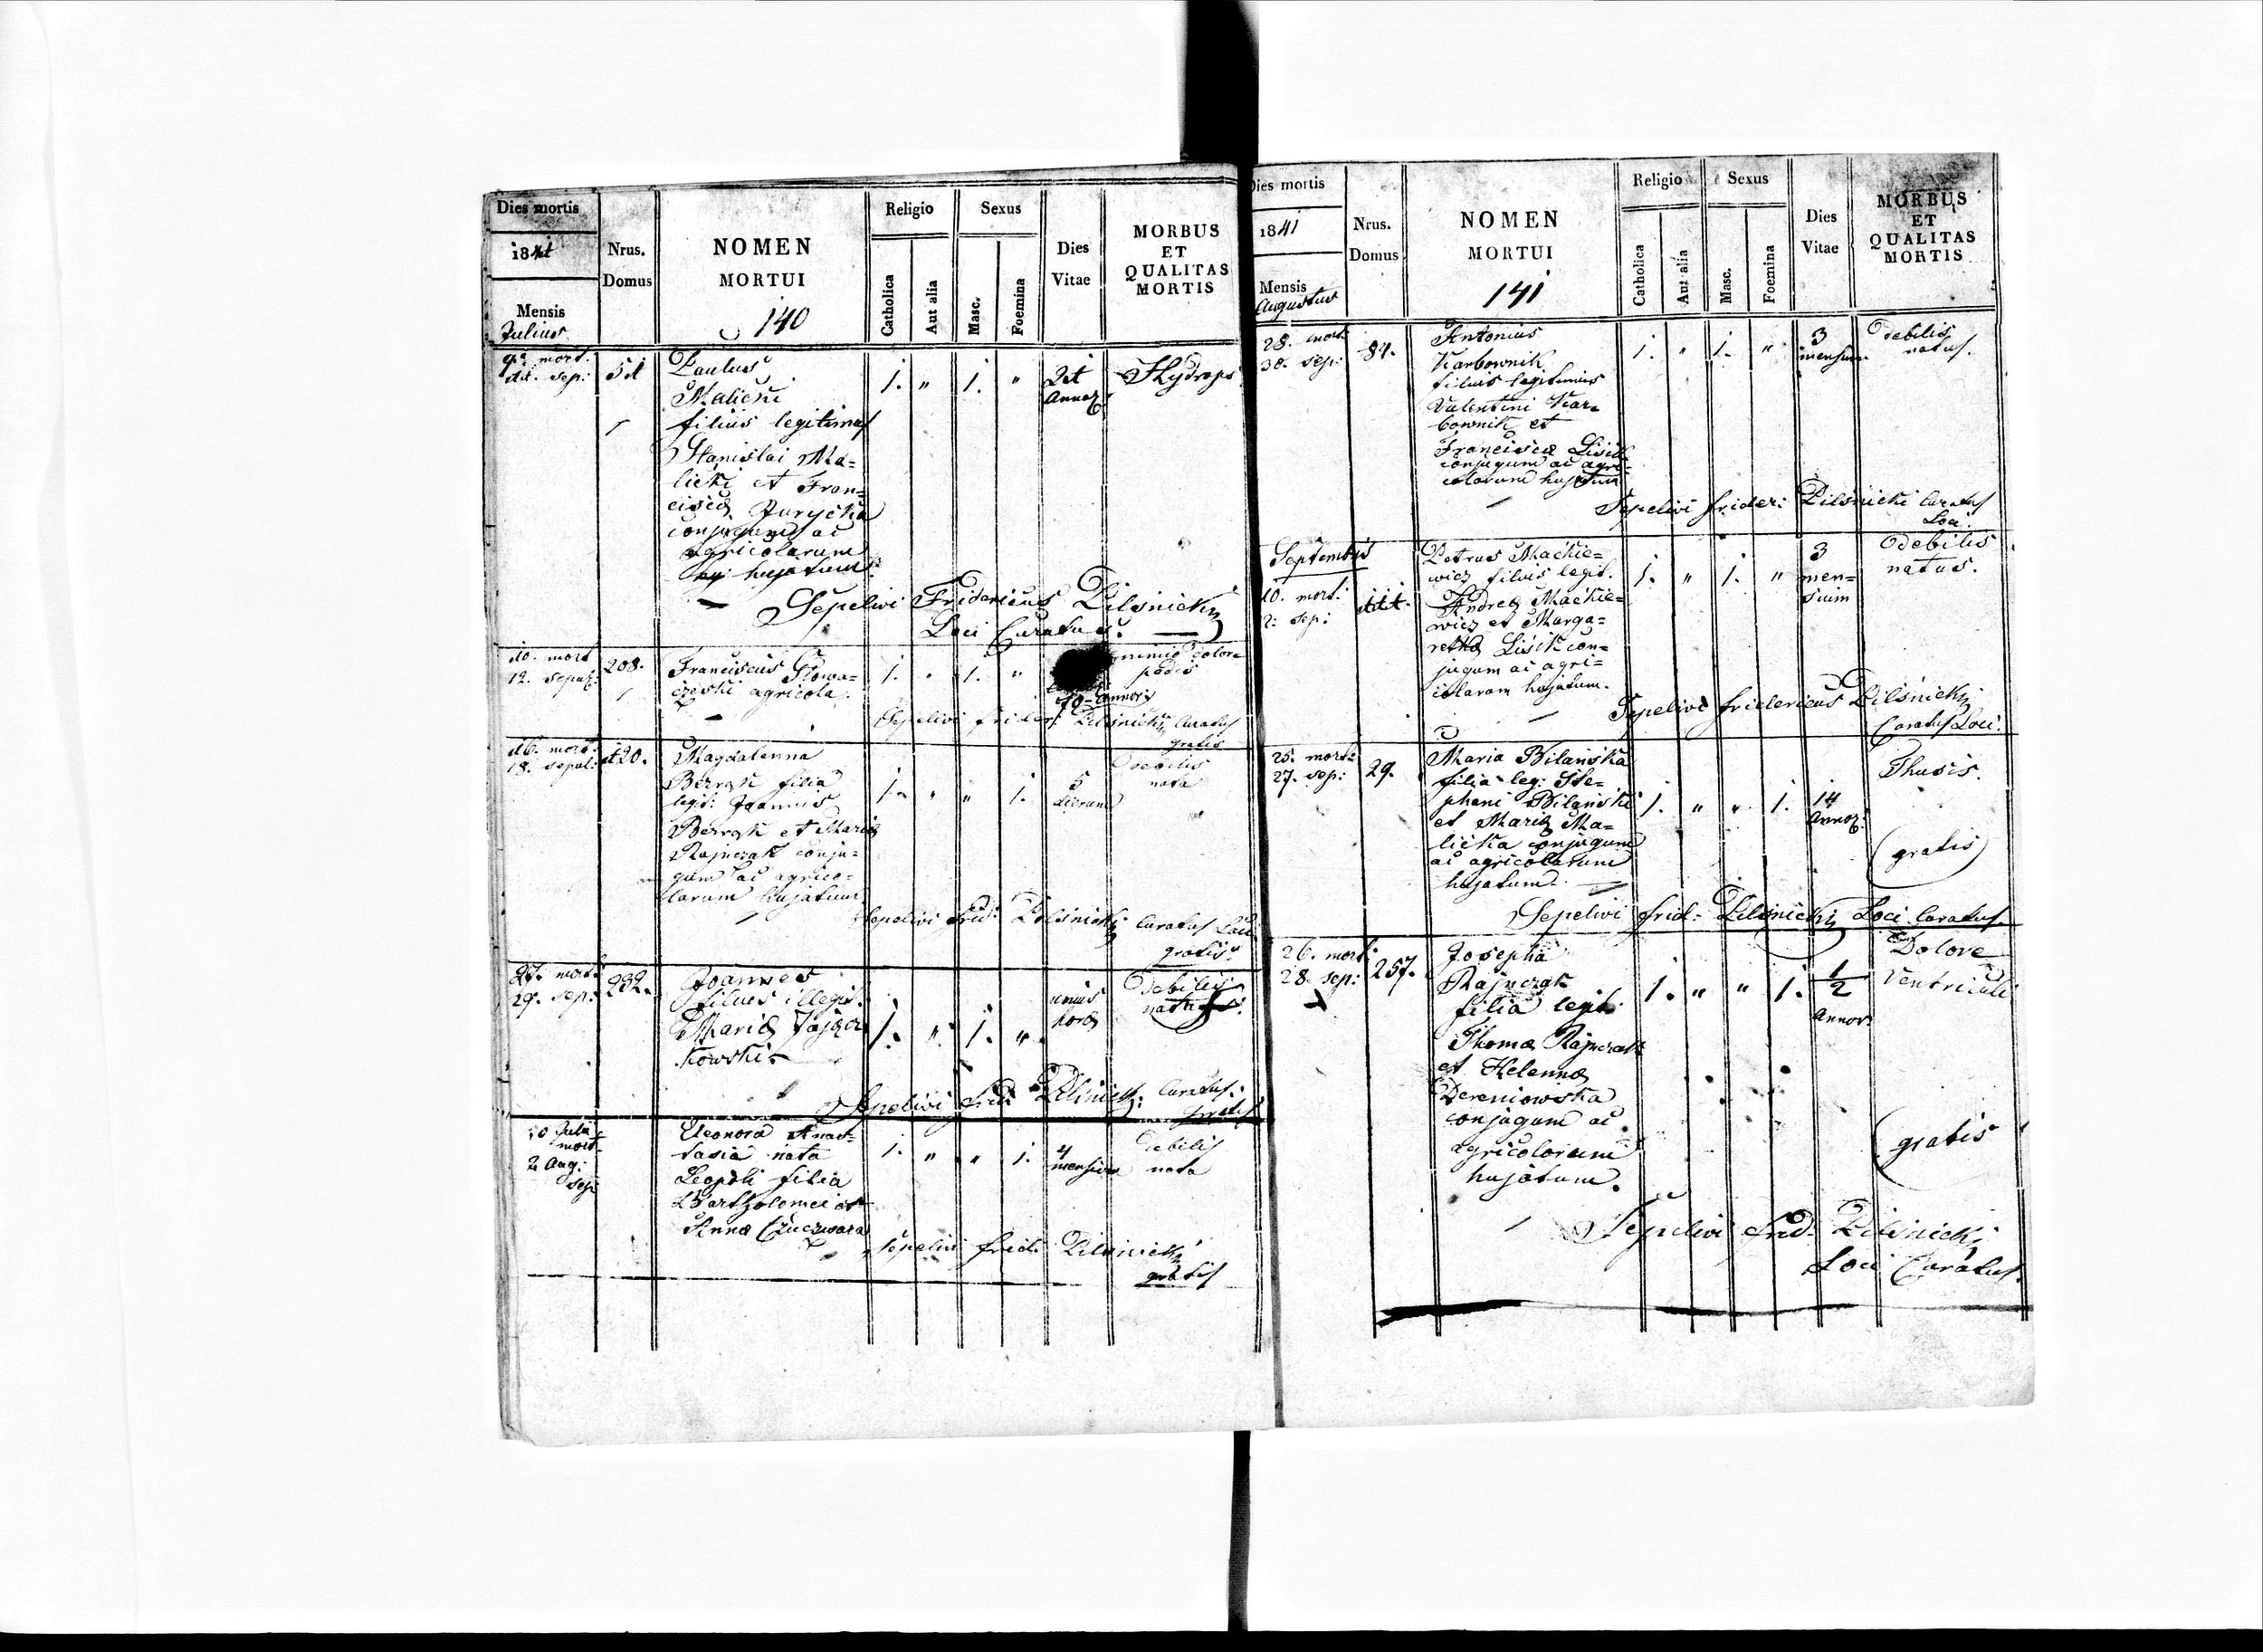 Dies mortis
1841
Mensis
Julius
Nrus.
Domus
NOMEN
MORTUI
140
Religio
Catholica
Aut alia
Sexus
Masc.
Foemina
Dies
Vitae
MORBUS
ET
QUALITAS
MORTIS
9a mort.
11. sep:
51
Paulus
Malicki
filius legitimus
Stanislai Ma=
licki et Fran=
cisca
conjugum ac
agricolarum
hujatum.
1. " 1. "
21
Annor.
Hydrops
Sepelivi Fridericus Pilsnicki
Loci Curatus.
10. mort
12. sepul:
208.
Franciscus Głowa=
czeski agricola.
1. " 1. "
70 Annor.
nimio dolore
pedis
Sepelivi frider: Pilsnicki Curatus
gratis
16. mort.
18. sepul:
120.
Magdalenna
filia
legit: Joannis
et Maria
Rajnczak conju=
gum ac agrico=
larum hujatum
1. " " 1.
5
dierum
debilis
nata
Sepelivi Frid: Pilsnicki Curatus Loci
gratis.
27. mort.
29. sep:
232.
Joannes
filius illegit.
Maria Jajcz
kowski.
1. " 1. "
unius
hora
Debilis
natus.
Sepelivi Frid Pilsnick: Curatus.
gratis
30 Julii
mort.
2 Aug:
sep:
Eleonora Anas=
tasia nata
Leopoli filia
Bartholomei et
Anna Czuczwara
1. " " 1.
4
mensium
debilis
nata
Sepelivi frid: Pilsnicki
gratis
Dies mortis
1841
Mensis
Augustus
Nrus.
Domus
NOMEN
MORTUI
141
Religio
Catholica
Aut alia
Sexus
Masc.
Foemina
Dies
Vitae
MORBUS
ET
QUALITAS
MORTIS
28. mort.
30. sep:
81.
Antonius
Karbownik
filius legitimus
Valentini Kar=
bownik et
Francisca Lisik
conjugum ac agri=
colarum hujatum
1. " 1. "
3
mensium
debilis
natus.
Sepelivi frider: Pilsnicki Curatus
Loci.
Septembris
10. mort:
2: sep:
111.
Petrus Mackie=
wicz filius legit.
Andrea Mackie=
wicz et Marga=
retha Lisik con=
jugum ac agri=
colarum hujatum.
1. " 1. "
3
men=
sium
debilis
natus.
Sepelivi fridericus Pilsnicki
Curatus Loci.
25. mort:
27. sep:
29.
Maria Bilańska
filia leg: Ste=
phani Bilański
et Maria Ma=
licka conjugum
ac agricolarum
hujatum.
1. " " 1.
14
Annor.
Thusis.
(gratis)
Sepelivi frid: Pilsnicki Loci Curatus
26. mort.
28. sep:
257.
Josepha
Rajnczak
filia legit.
Thoma Rajnczak
et Helenna
Dereniowska
conjugum ac
agricolorum
hujatum.
1. " " 1.
1/2
Annor.
Dolore
Ventriculi
(gratis
Sepelivi Frid. Pilsnicki
Loci Curatus.